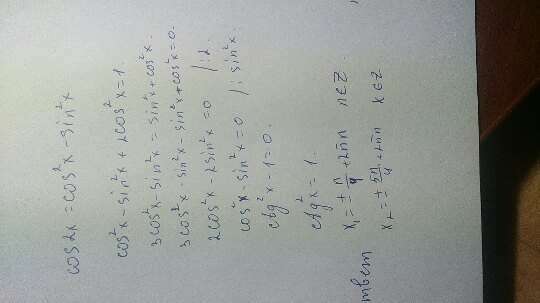 cos2x = cos²x - sin²x
cos²x - sin²x + 2cos²x = 1.
3cos²x - sin²x = sin²x + cos²x.
3cos²x - sin²x - sin²x + cos²x = 0.
2cos²x - 2sin²x = 0 /:2.
cos²x - sin²x = 0 /: sin²x.
ctg²x - 1 = 0.
ctg²x = 1.
x₁ = ± π/4 + 2πn n∈Z
x₂ = ± 3π/4 + 2πn к∈Z
твет